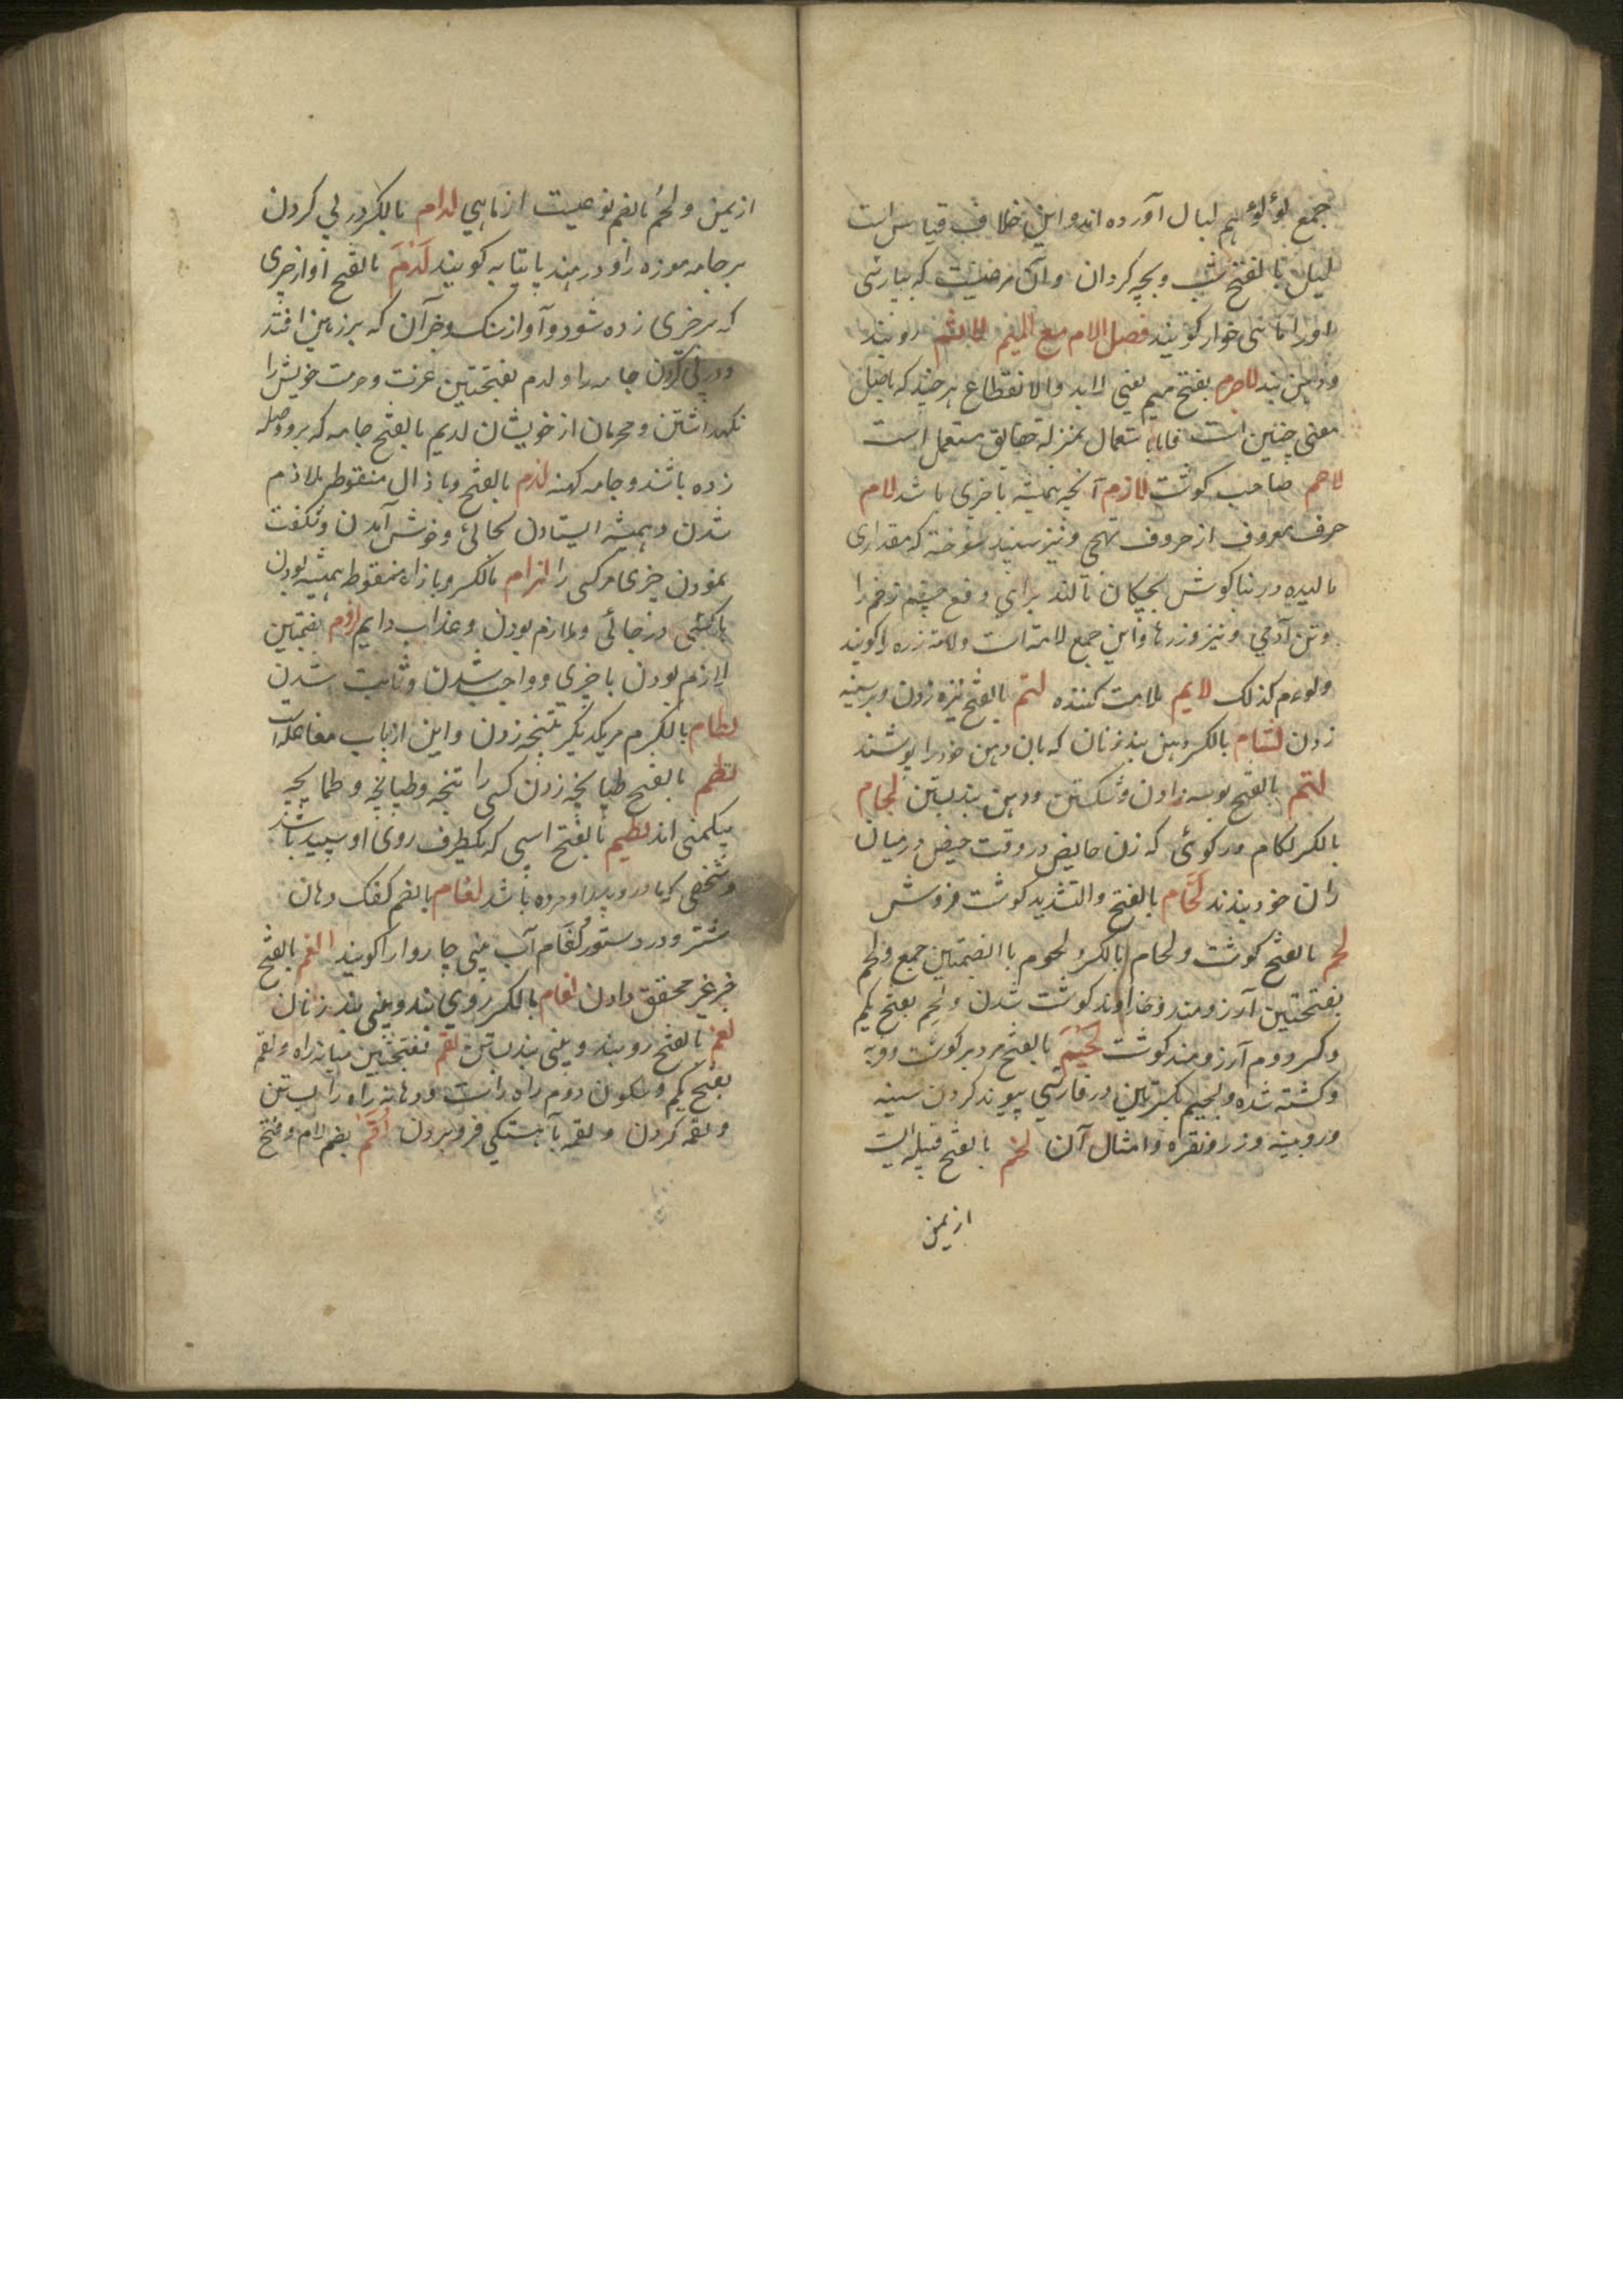 جمع لؤلؤ هم لبال آورده اند و این خلاف قیاس است
لیل بالفتح شب و بچه کردان و آن مرضیست که بپارسی
اورا خوار کویند فصل اللام مع المیم لاثم روبند
ودهن بند لاجرم بفتح میم یعنی لابد ولا انقطاع هر چند که باصل
معنی چنین است فاما باستعمال بمنزله حقا مستعمل است
لاحم صاحب کوشت لازم آنچه همیشه با چیزی باشد لام
حرف معروف از حروف تهجی و نیز سپند سوخته که مقداری
مالیده در بناکوش بچکان مالند برای دفع چشم زخم را
وتن آدمی و نیز زرها و این جمع لامه است ولامه زره را کویند
ولوم کذلک لایم ملامت کننده لتم بالفتح نیزه زدن و بر سینه
زدن لثام بالکسر دهن بند زنان که بان دهن خود را پوشند
لثم بالفتح بوسه دادن و شکستن و دهن بند بستن لجام
بالکسر لکام و رکوئی که زن حایض در وقت حیض در میان
ران خود بندند لحّام بالفتح والتشدید کوشت فروش
لحم بالفتح کوشت ولحام بالکسر ولحوم باالضمتین جمع ولحم
بفتحتین آرزومند و خداوند کوشت شدن ولحم بفتح یکم
وکسر دوم آرزومند کوشت لحیم بالفتح مرد پر کوشت و فربه
وکشته شده و لحیم بکسرتین در فارسی پیوند کردن سینه
وروینه و زر و نقره و امثال آن لخم بالفتح قبیله ایست
از یمن
از یمن ولخم بالضم نوعیست از ماهی لدام بالکسر در پی کردن
بر جامه موزه را و در هند پایتابه کویند لدم بالفتح آواز چیزی
که بر چیزی زده شود و آواز سنک وجز آن که بر زمین افتد
ودر پی کردن جامه را ولدم بفتحتین عزت و حرمت خویش را
نکهداشتن و محرمان از خویشان لدیم بالفتح جامه که برو وصله
زده باشند و جامه کهنه لذم بالفتح وبا ذال منقوطه ملازم
شدن وهمیشه ایستادن بجائی و خوش آمدن و شکفت
نمودن چیزی مر کسی را لزام بالکسر وبا زاء منقوطه همیشه بودن
با کسی در جائی و ملازم بودن و عذاب دایم لزوم بضمتین
لازم بودن با چیزی و واجب شدن و ثابت شدن
لطام بالکسر مر یکدیکر تنجه زدن و این از باب مفاعله است
لطم بالفتح طپانچه زدن کسی را تنجه و طپانچه و طمانچه
بیکمعنی اند لطیم بالفتح اسپی که یکطرف روی او سپید باشد
وشخصی که مادر و پدر او مرده باشد لغام بالضم کفک دهان
شتر و در دستور لغام آب بینی چاروا را کویند لغم بالفتح
خبر غیر محقق دادن لفام بالکسر روی بند و بینی بند زنان
لفم بالفتح روبند و بینی بند بستن لقم بفتحتین میانه راه ولقم
بفتح یکم و سکون دوم راه راست و دهانه راه را بستن
ولقمه کردن و لقمه بآهستکی فرو بردن لقم بضم لام وفتح